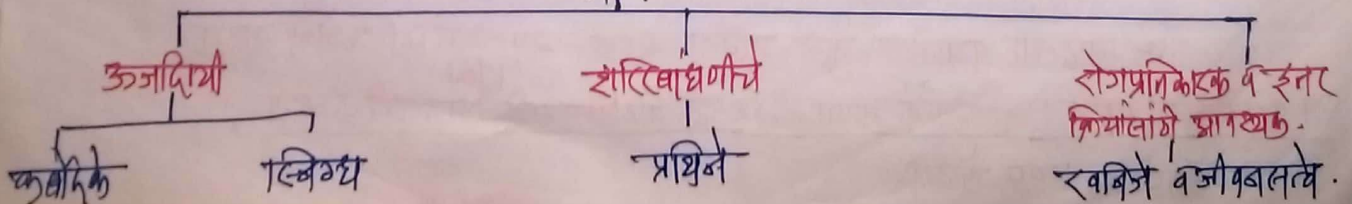 ऊर्जादायी
शरीरबांधणीचे
रोगप्रतिकारक व इतर
क्रियांसाठी आवश्यक.
कर्बोदके
स्निग्ध
प्रथिने
खनिजे व जीवनसत्वे.